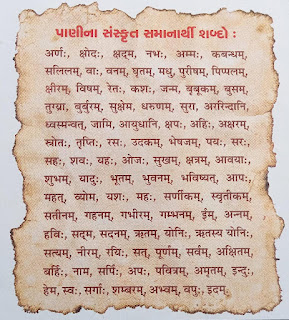 પાણીના સંસ્કૃત સમાનાર્થી શબ્દો :
अर्णः, क्षोदः, क्षद्म, नभः, अम्भः, कबन्धम्,
सलिलम्, वाः, वनम्, घृतम्, मधु, पुरीषम्, पिप्पलम्,
क्षीरम्, विषम्, रेतः, कशः, जन्म, बृबूकम्, बुसम्,
तुग्र्या, बुर्बुरम्, सुक्षेम, धरुणम्, सुरा, अररिन्दानि,
ध्वस्मन्वत्, जामि, आयुधानि, क्षपः, अहिः, अक्षरम्,
स्रोतः, तृप्तिः, रसः, उदकम्, भेषजम्, पयः, सरः,
सहः, शवः, यहः, ओजः, सुखम्, क्षत्रम्, आवयाः,
शुभम्, यादुः, भूतम्, भुवनम्, भविष्यत्, आपः,
महत्, व्योम, यशः, महः, सर्णीकम्, स्वृतीकम्,
सतीनम्, गहनम्, गभीरम्, गम्भनम्, ईम्, अन्नम्,
हविः, सद्म, सदनम्, ऋतम्, योनिः, ऋतस्य योनिः,
सत्यम्, नीरम्, रयिः, सत्, पूर्णम्, सर्वम्, अक्षितम्,
बर्हिः, नाम, सर्पिः, अपः, पवित्रम्, अमृतम्, इन्दुः,
हेम, स्वः, सर्गाः, शम्बरम्, अभ्वम्, वपुः, इदम्.